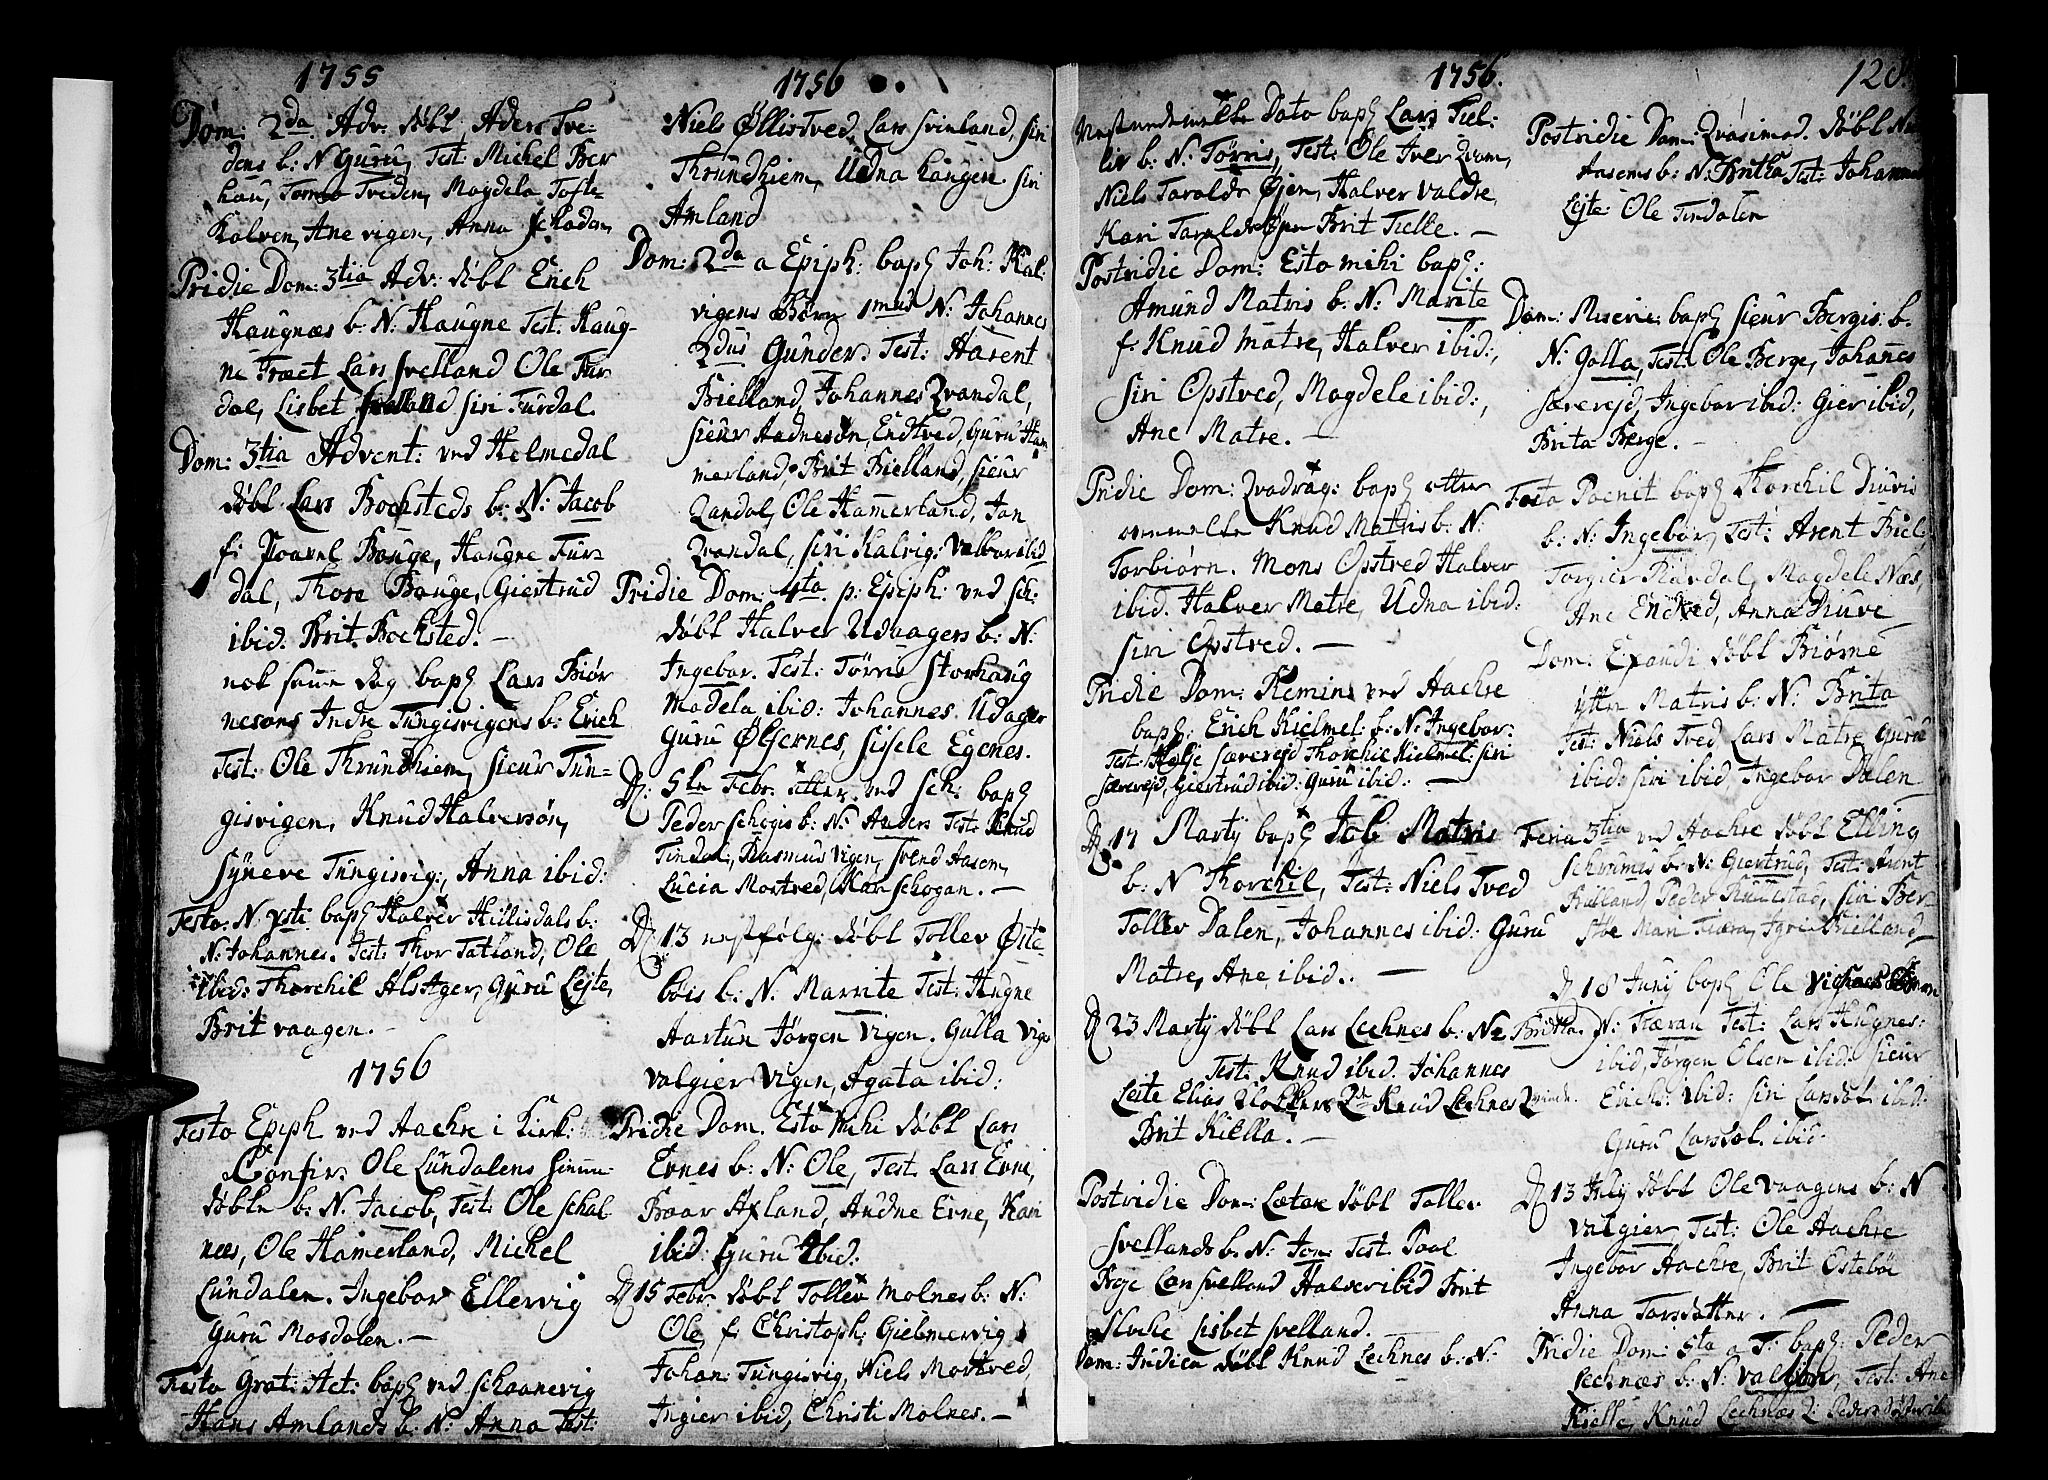 1755
Dom: 2da Adv: döbt Aders Tve-
dens b: N Guru, Test: Michel Ber
hau, Tveden, Magdela Tofte
Kalven, Ane vigen, Anna Schadan
Pridie Dom: 3tia Adv: döbt Erich
Haugnæs b: N: Haugne Test: Haug-
ne Træet Lars Svelland Ole Fur
dal, Lisbet Svelland Siri Furdal.
Dom: 3tia Advent: ved Helmedal
döbt Lars Bochsteds b: N: Jacob
f: Poavel Bauge, Haugne Fur-
dal, Thore Bauge, Giertrud
ibid: Brit Bochsted. —
nok samme dag bapt Lars Biör
nesons Indre Tungisvigens b: Erich
Test: Ole Thrundhiem, Sieur Tun-
gisvigen, Knud Halversön,
Syneve Tungisvig:, Anna ibid:
Festo: N. ysti bapt Halver Hillisdals b:
N: Johannes. Test: Thor Tatland, Ole
ibid: Thorchil AlsAger, Guru Lejte,
Brit vaagen. —
1756
Festo Epiph ved Aachre i Kirk:
Confir. Ole Lundalens
döbte b: N. Jacob, Test: Ole Schal
nees, Ole Hamerland, Michel
Lundalen. Ingebor Ellervig
Guru Mosdalen. —
Festo Grat: Act: bapt ved Schaanevig
Hans Amlands b: N: Anna Test:
1756
Niels ÖllisTved, Lars Svinland, Siri
Thrundhiem, Udna haugen. Siri
Amland
Dom: 2da a Epiph: bapt Joh: Kal-
vigens Börn 1mus N: Johannes
2dus Gunder. Test: Harent
Bielland, Johannes Qvandal,
Sieur Aadnesön, Endtved, Guru Ham
merland, Brit Bielland, Sieur
Qandal, Ole Hamerland, Jan
Qvandal, Siri Kalvig: Valboribid
Pridie Dom: 4ta p: Epiph: ved Sch:
döbt Halver Udaagers b: N:
Ingebor. Test: Törris Storhaug
Madela ibid: Johannes Udager
Guru Ölfernes, Sissele Egenes.
D: 5te Febr. etter ved Sch: bapt
Peder Schogis b: N: Anders Test: Knud
Tindal, Rasmus Vigen, Svend Aasem,
Lucia Mostved, Kar Schogan. —
D 13 nestfölg: döbt Tollev Öste
böis b: N. Marrite Test: Augne
Aartun Jörgen Vigen. Gulla Vige
Valgier Vigen, Agata ibid:
Pridie Dom. Esto Mihi döbt Lars
Ernes b: N: Ole, Test. Lars Erne,
Baar Axland, Audne Erne, Kari
ibid: Guru ibid:
D 15 Febr. döbt Tollev Molnes b: N:
Ole f: Christoph: Gielmervig
Johan: Tungisvig, Niels Mostved,
Ingier ibid, Christi Molnes. —
1756.
Nestmeldte Dato bapt Lars Tiel-
liv b: N: Törris, Test: Ole Iver Qvam,
Niels Taralds Öjen, Halver Valdre,
Kari Taralds Öjen Brit Tielle. —
Postridie Dom: Esto mihi bapt:
Amund Matris b: N: Marite
f: Knud Matre, Halver ibid:,
Siri Opstved, Magdele ibid:,
Ane Matre. —
Pridie Dom: Qvadrag: bapt etter
ommelte Knud Matris b: N:
Torbiörn. Mons Opstved Halver
ibid. Halver Matre, Udna ibid:
Siri Opstved. —
Pridie Dom: Remins ved Aachre
bapt: Erich Kielmel: b: N: Ingebor:
Test: Helje Særevejd Thorchil Kielmel: Siri
Særevejd, Giertrud ibid: Guru ibid: —
D 17 Marty bapt Job Matris
b: N Thorchil, Test: Niels Tved
Tollev Dalen, Johannes ibid: Guru
Matre, Ane ibid: —
D 23 Marty döbt Lars Lechnes b: N: Britta.
Test: Knud ibid. Johannes
Leite Elias Klokkers Knud Lechnes Qvinde.
Brit Kiella. —
Postridie Dom: Lætare döbt Tollev
Svellands b: N: Jon: Test: Paal
Frøje Lars Svelland Halver ibid Brit
Slocke Lisbet Svelland.
Dom: Judica döbt Knud Lechnes b: N:
120
Postridie Dom: Qvasimod. döbt
Aasems b: N: Britha Test: Johannes
Lejte: Ole Tindalen
Dom: Miserie: bapt Sieur Bergis: b.
N: Golla, Test: Ole Berge, Johannes
Særevejd, Ingebor ibid: Gier ibid,
Brita Berge. —
Festo Poenit bapt Thorchil Diuvis
b: N: Ingebor, Test: Arent Biel:
Torgier Rævdal, Magdele Næs,
Ane Endtved, Anna Diuve
Dom: Exaudi döbt Biörne
ytter Matris b: N: Brita
Test: Niels Tved Lars Matre Guru
ibid: Siri ibid, Ingebor Dalen
Feria 3tia ved Aachre döbt Elling
b: N: Giertrud, Test: Arent
Rulland Peder Runestad, Siri Ber-
Mari Tiæra, Bielland
D 18 Juny bapt Ole
N: Tiæran Test: Lars Haugnes:
ibid, Jörgen Olsen ibid: Sieur
Erichs: ibid: Siri Larsdot: ibid:
Guru Larsdot. ibid:
D 13 July döbt Ole Vaagens b: N
Valgier, Test: Ole Aachre
Ingebor Aachre, Brit Östeböe
Anna Larsdatter. —
Pridie Dom: 5ta a T: bapt Peder
Lechnæs b: N: Valbor, Test: Ane
Kielle, Knud Lechnæs